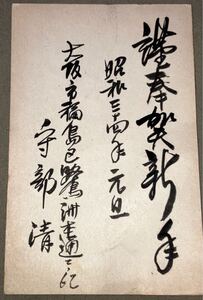 謹奉賀新年
昭和三十四年元旦
大阪市福島区鷺洲本通二ノ六二
守部清